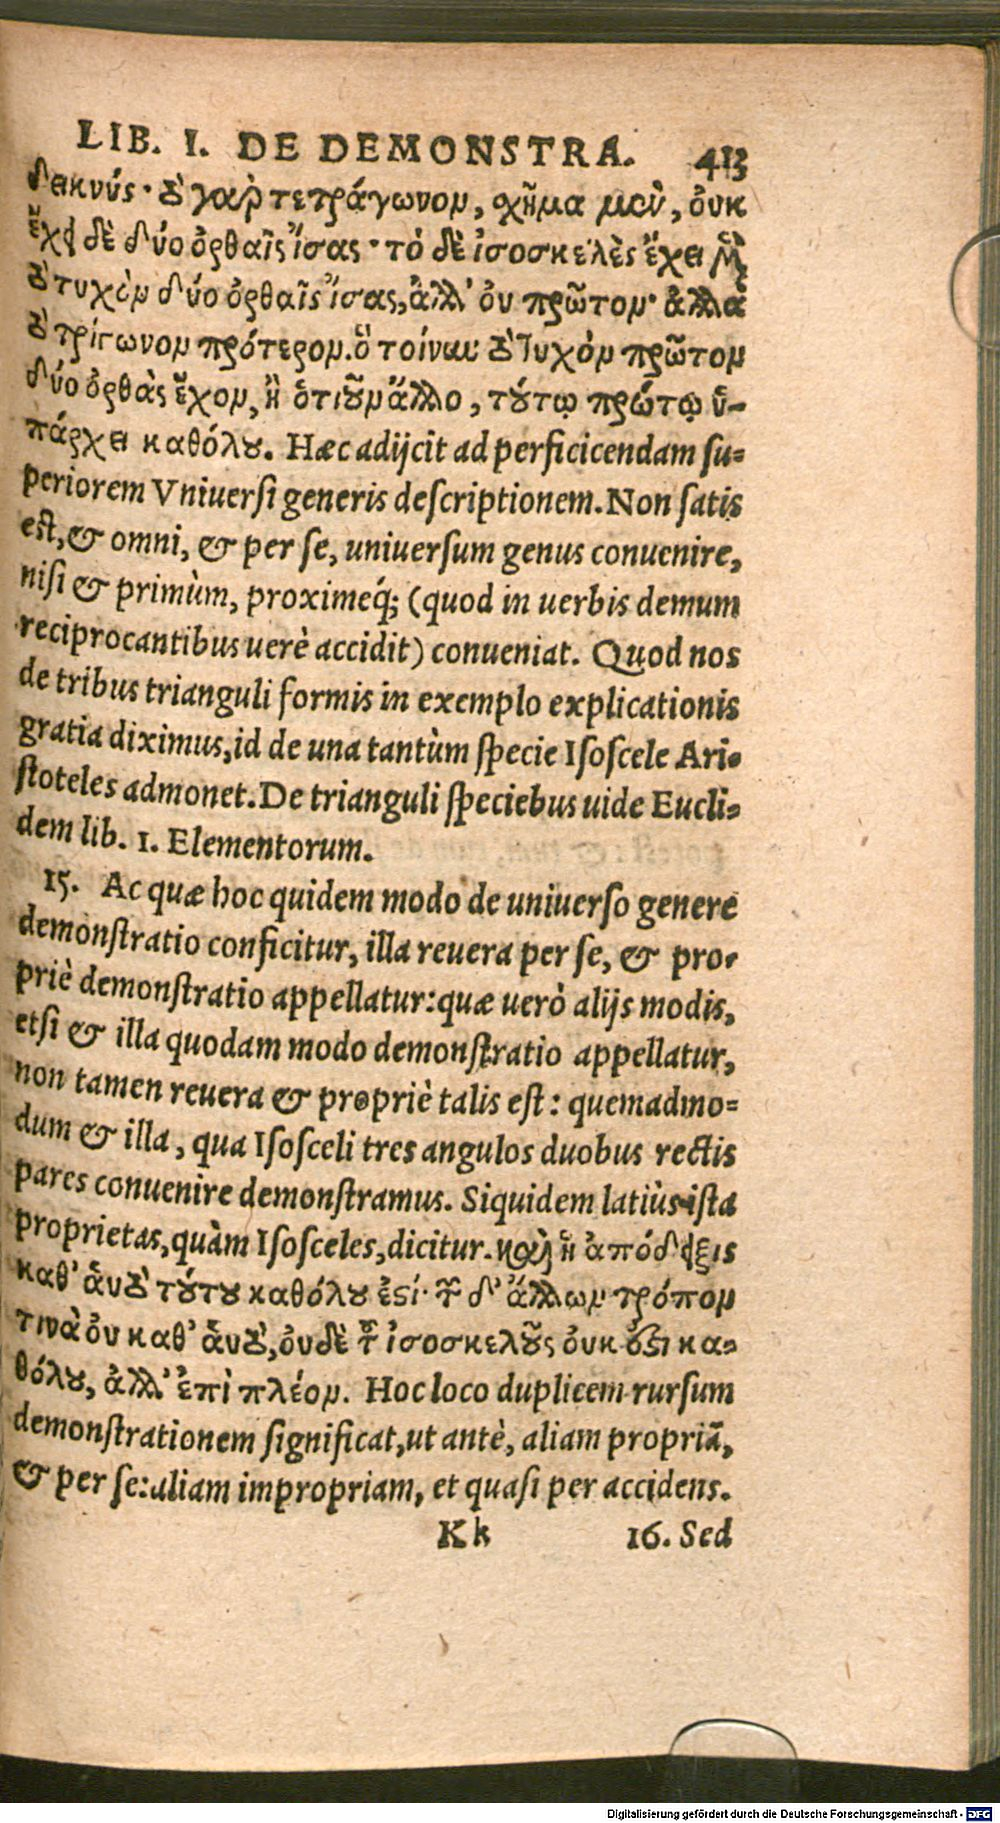 LIB. I. DE DEMONSTRA. 413
δεικνύς· τὸ γαρ̀ τετράγωνον, σχῆμα μεν̀, ὀυκ
ἔχει δὲ δύο ὀρθαῖς ἴσας· τὸ δὲ ἰσοσκελὲς ἔχει μὲν
τὸ τυχὸν δύο ὀρθαῖς ἴσας, ἀλλ' ὀυ πρῶτον· ἀλλὰ
τὸ τρίγωνον πρότερον. ὃ τοίνυν τὸ τυχὸν πρῶτον
δύο ὀρθὰς ἔχον, ἢ ὁτιοῦν ἄλλο, τούτῳ πρώτῳ ὑ-
πάρχει καθόλου. Hæc adijcit ad perficicendam su=
periorem Vniuersi generis descriptionem. Non satis
est, & omni, & per se, uniuersum genus conuenire,
nisi & primùm, proximeq́; (quod in uerbis demum
reciprocantibus uerè accidit) conueniat. Quod nos
de tribus trianguli formis in exemplo explicationis
gratia diximus, id de una tantùm specie Isoscele Ari=
stoteles admonet. De trianguli speciebus uide Eucli=
dem lib. 1. Elementorum.
15. Ac quæ hoc quidem modo de uniuerso genere
demonstratio conficitur, illa reuera per se, & pro=
priè demonstratio appellatur: quæ uerò alijs modis,
etsi & illa quodam modo demonstratio appellatur,
non tamen reuera & propriè talis est: quemadmo=
dum & illa, qua Isosceli tres angulos duobus rectis
pares conuenire demonstramus. Siquidem latiùs ista
proprietas, quàm Isosceles, dicitur. καὶ ἡ ἀπόδειξις
καθ' ἁυτὸ τούτου καθόλου ἐστί· τῶν δ' ἄλλων τρόπον
τινὰ ὀυ καθ' ἁυτὸ, ὀυδὲ τοῦ ἰσοσκελοῦς ὀυκ ἔστι κα=
θόλου, ἀλλ' ἐπὶ πλέον. Hoc loco duplicem rursum
demonstrationem significat, ut antè, aliam propriā,
& per se: aliam impropriam, et quasi per accidens.
Kk 16. Sed
Digitalisierung gefördert durch die Deutsche Forschungsgemeinschaft - DFG